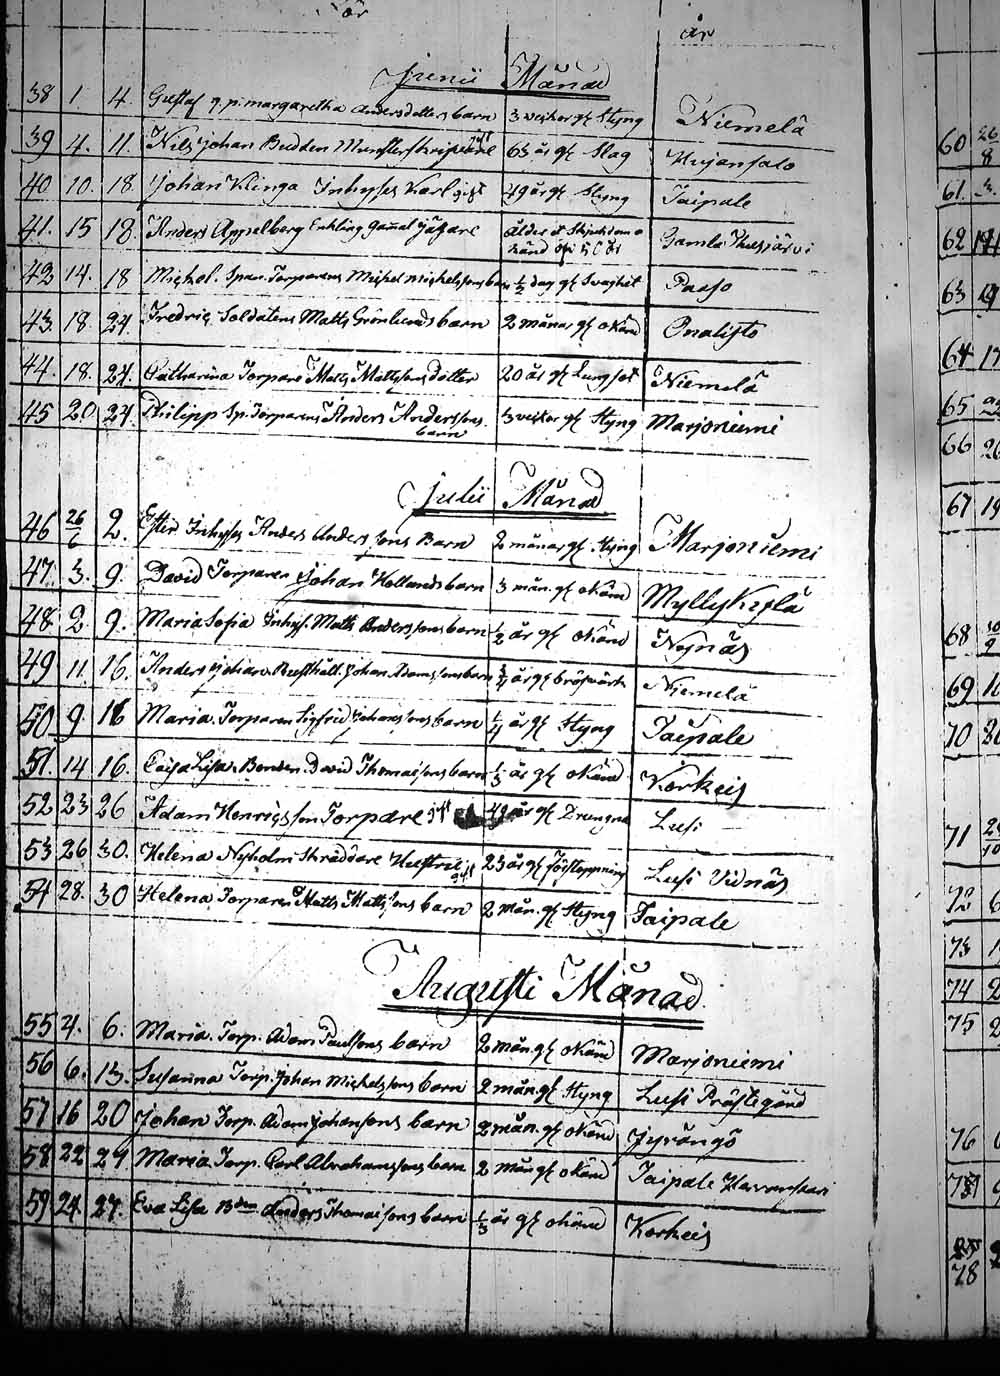 år
år
Junii Månad
38 1 4. Gustaf q.p. margaretha Andersdotters barn 3 veckor gl Styng Niemelä
39 4. 11. Nils Johan Budden Munsterskrivare gift 63 år gl Slag Hujansalo
40 10. 18. Johan Klinga Inhyses Karl gift 49 år gl Styng Taipale
41. 15 18. Anders Appelberg Enkling Gamal Jägare
okänd 50 år Gamla
42 14. 18 Michel. Span. Torparens Michel Michelssons barn ½ dag gl Svaghet Paaso
43. 18. 24. Fredric Soldatens Matts Grönlunds barn 2 månar gl okänd Onalisto
44. 18. 24. Catharina Torpare Matts Mattssons Dotter 20 år gl Lungsot Niemelä
45 20. 24. Philipp Sp. Torparens Anders Anderssons 3 veckor gl Styng Marjoniemi
barn
Julii Månad
46 26/6 2. Ester Inhyses Anders Anderssons Barn 2 månar gl Styng Marjoniemi
47. 3. 9. David Torparen Johan Hollands barn 3 mån. gl okänd Myllykylä
48. 2. 9. Maria Sofia Inhys. Matts Anderssons barn ½ år gl okänd Nynäs
49 11. 16. Anders Johan Johan Adamssons barn ¾ år gl bröstvärk Niemelä
50 9. 16 Maria. Torparen Sigfrid Johanssons barn ¼ år gl Styng Taipale
51. 14 16. Caisa Lisa. Bonden David Thomassons barn ⅓ år gl okänd Korkeis
52 23 26 Adam Henricsson Torpare gift 49 år gl Lusi
53 26 30. Helena Nyholm Skräddare Hustru gift 23 år gl förstoppning Lusi Vidnäs
54 28. 30 Helena, Torparen Matts Mattssons barn 2 mån. gl Styng Taipale
Augusti Månad.
55 4. 6. Maria. Torp. Adam Paulsons barn 2 mån. gl okänd Marjoniemi
56 6. 13. Susanna Torp. Johan Michelssons barn 2 mån gl Styng Lusi Prästegård
57 16 20 Johan Torp. Adam Johanssons barn 2 mån. gl okänd Jyrängö
58. 22 24 Maria Torp. Carl Abrahamssons barn 2 mån gl okänd Taipale
59 24. 27. Eva Lisa Bden Anders Thomassons barn ⅓ år gl okänd Korkeis
60 26/8
61.
62
63 9
64 17
65
66 26
67 19
68
69 10
70
71
72
73
74 2
75 2
76
78